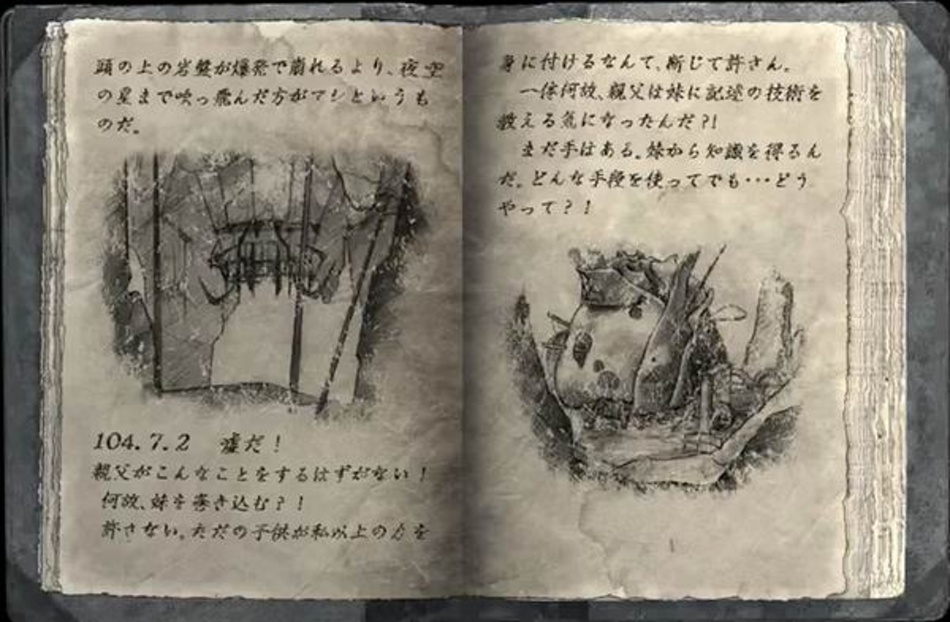 頭の上の岩盤が爆発で崩れるより、夜空
の星まで吹っ飛んだ方がマシというも
のだ。
104.7.2 嘘だ!
親父がこんなことをするはずがない!
何故、妹を巻き込む?!
許さない。ただの子供が私以上の力を
身に付けるなんて、断じて許さん。
一体何故、親父は妹に記述の技術を
教える気になったんだ?!
まだ手はある。妹から知識を得るん
だ。どんな手段を使ってでも・・・どう
やって?!